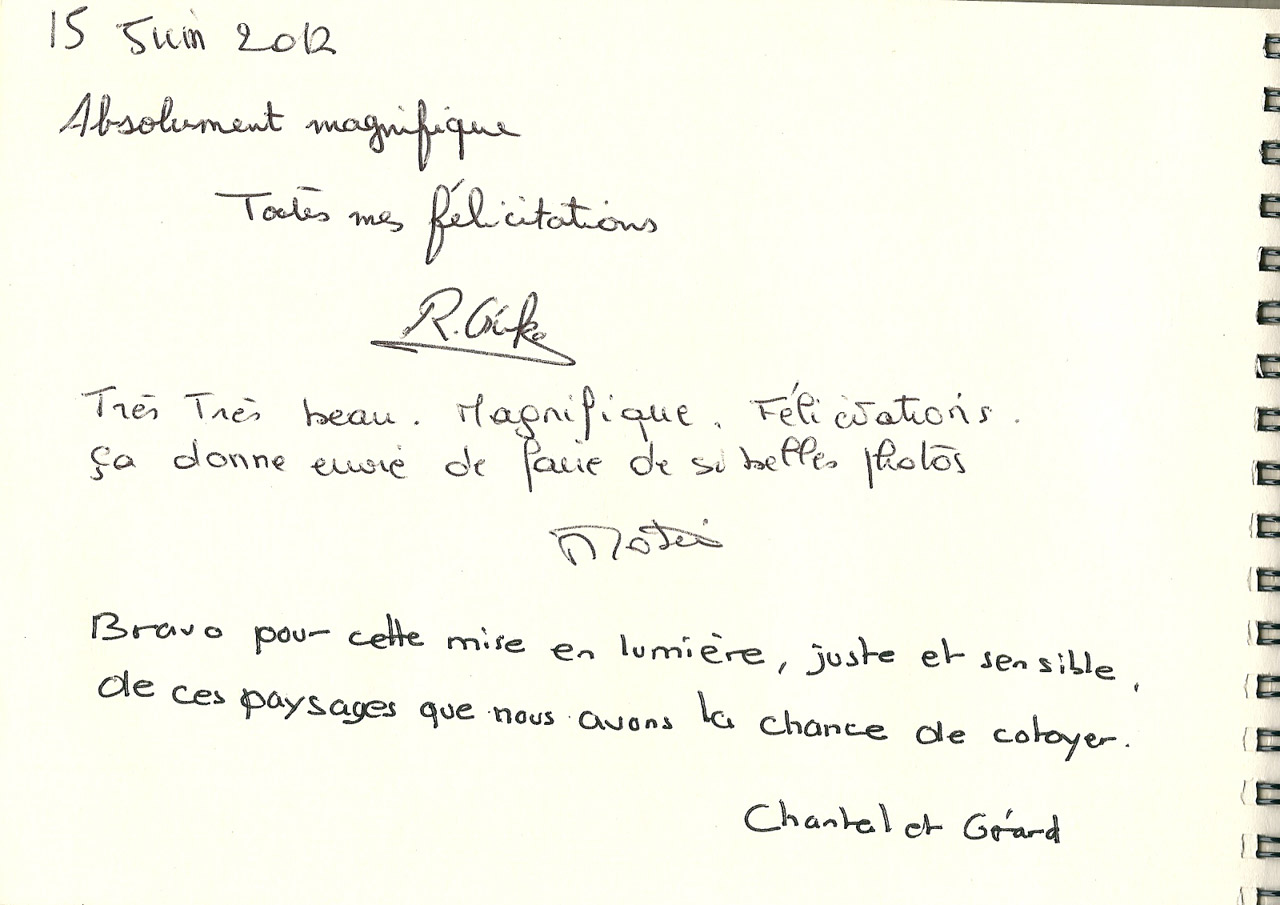 15 Juin 2012
Absolument magnifique
Toutes mes félicitations
R.
Très Très beau. Magnifique. Félicitations.
ça donne envie de faire de si belles photos
Bravo pour cette mise en lumière, juste et sensible,
de ces paysages que nous avons la chance de cotoyer.
Chantal et Gérard